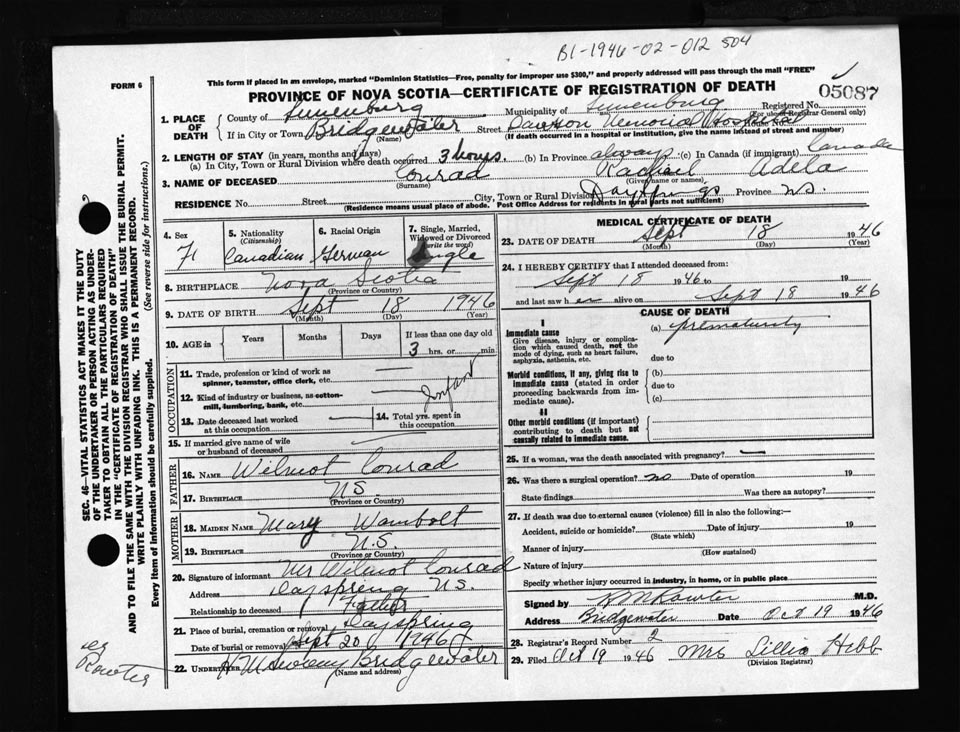 B1-1946-02-012 504
This form if placed in an envelope, marked "Dominion Statistics—Free, penalty for improper use $300," and properly addressed will pass through the mail "FREE"
FORM 6
PROVINCE OF NOVA SCOTIA—CERTIFICATE OF REGISTRATION OF DEATH
05087
1. PLACE OF DEATH
County of Lunenburg Municipality of Lunenburg Registered No.
(For use of Registrar General only)
If in City or Town Bridgewater Street Dawson Memorial Hospital House No.
(Name) (If death occurred in a hospital or institution, give the name instead of street and number)
2. LENGTH OF STAY (in years, months and days)
(a) In City, Town or Rural Division where death occurred 3 hours. (b) In Province always (c) In Canada (if immigrant) Canada
3. NAME OF DECEASED Conrad Rachael Adela
(Surname) (Given name or names)
RESIDENCE No. Street City, Town or Rural Division Dayspring Province N.S.
(Residence means usual place of abode. Post Office Address for residents in rural parts not sufficient)
4. Sex
F
5. Nationality
(Citizenship)
Canadian
6. Racial Origin
German
7. Single, Married, Widowed or Divorced
(write the word)
Single
8. BIRTHPLACE Nova Scotia
(Province or Country)
9. DATE OF BIRTH Sept 18 1946
(Month) (Day) (Year)
10. AGE in Years Months Days If less than one day old
3 hrs. or min.
OCCUPATION
11. Trade, profession or kind of work as spinner, teamster, office clerk, etc.
12. Kind of industry or business, as cotton-mill, lumbering, bank, etc. Infant
13. Date deceased last worked at this occupation
14. Total yrs. spent in this occupation
15. If married give name of wife or husband of deceased
FATHER
16. NAME Wilmot Conrad
17. BIRTHPLACE NS
(Province or Country)
MOTHER
18. MAIDEN NAME Mary Wambolt
19. BIRTHPLACE N.S.
(Province or Country)
20. Signature of informant Mr Wilmot Conrad
Address Dayspring N.S.
Relationship to deceased Father
21. Place of burial, cremation or removal Dayspring
Date of burial or removal Sept 20 1946
22. UNDERTAKER H M Sweeny Bridgewater
(Name and address)
MEDICAL CERTIFICATE OF DEATH
23. DATE OF DEATH Sept 18 1946
(Month) (Day) (Year)
24. I HEREBY CERTIFY that I attended deceased from:
Sept 18 1946 to 19
and last saw her alive on Sept 18 1946
CAUSE OF DEATH
I
Immediate cause
Give disease, injury or complication which caused death, not the mode of dying, such as heart failure, asphyxia, asthenia, etc.
(a) prematurity
due to
Morbid conditions, if any, giving rise to immediate cause (stated in order proceeding backwards from immediate cause).
(b)
due to
(c)
II
Other morbid conditions (if important) contributing to death but not causally related to immediate cause.
25. If a woman, was the death associated with pregnancy? —
26. Was there a surgical operation? no Date of operation 19
State findings Was there an autopsy?
27. If death was due to external causes (violence) fill in also the following:—
Accident, suicide or homicide? Date of injury 19
(State which)
Manner of injury
(How sustained)
Nature of injury
Specify whether injury occurred in industry, in home, or in public place
Signed by M.D.
Address Bridgewater Date Oct 19 1946
28. Registrar's Record Number 2
29. Filed Oct 19 1946 Mrs Lillia Hebb
(Division Registrar)
SEC. 46—VITAL STATISTICS ACT MAKES IT THE DUTY
OF THE UNDERTAKER OR PERSON ACTING AS UNDER-
TAKER TO OBTAIN ALL THE PARTICULARS REQUIRED
IN THE "CERTIFICATE OF REGISTRATION OF DEATH" AND TO FILE THE SAME WITH THE DIVISION REGISTRAR WHO SHALL ISSUE THE BURIAL PERMIT.
WRITE PLAINLY WITH UNFADING INK. THIS IS A PERMANENT RECORD.
Every item of information should be carefully supplied. (See reverse side for instructions.)